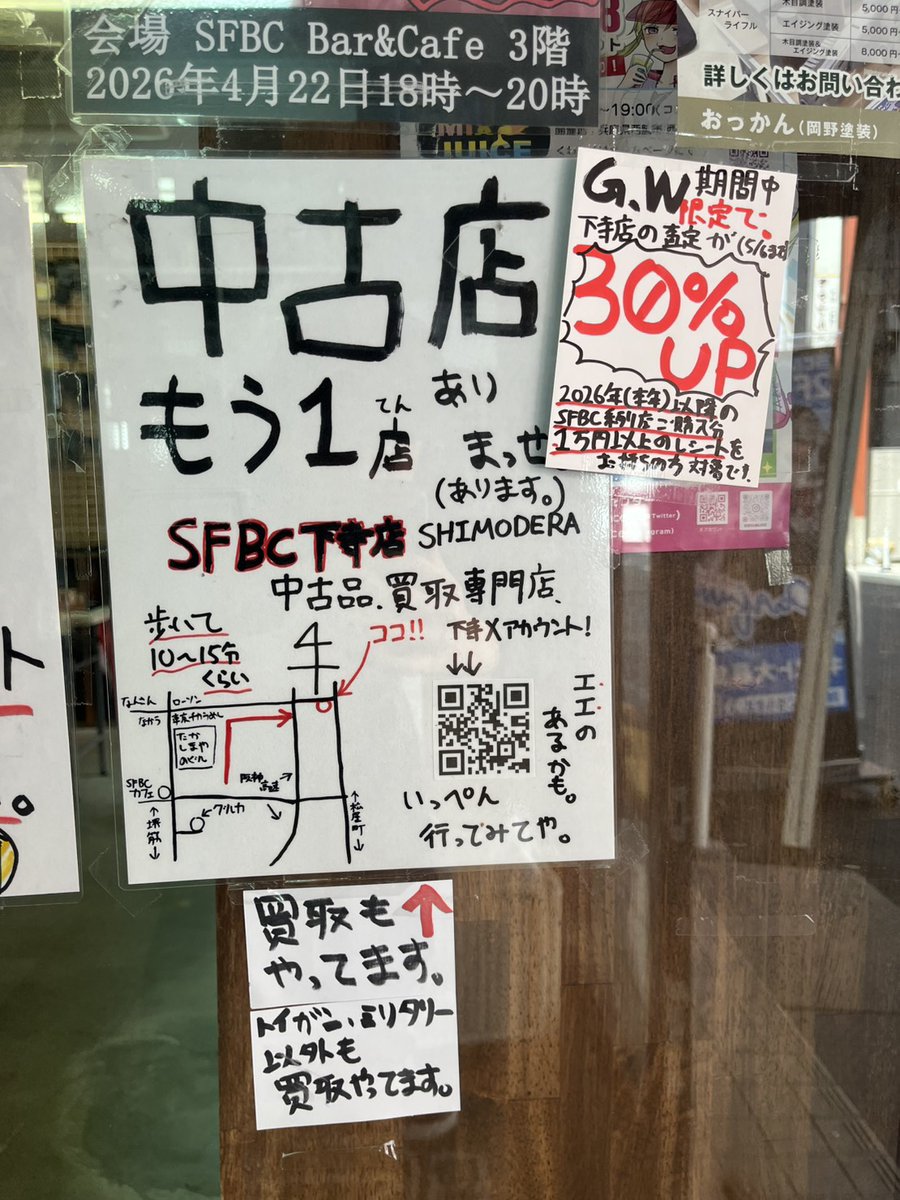 会場 SFBC Bar&Cafe 3階
2026年4月22日18時～20時
スナイパー
ライフル
木目調塗装
5,000円
エイジング塗装
5,000円
木目調塗装&
エイジング塗装
8,000円
詳しくはお問い合わ
おっかん(岡野塗装)
～19:00(コ
MIX
JUICE
G.W期間中
限定で。
下寺店の査定が(5/6まで)
30%
UP
2026年(本年)以降の
SFBC系列店ご購入分
1万円以上のレシートを
お持ちの方対象です。
中古店
もう1店
てん
あり
まっせ
(あります。)
SFBC下寺店 SHIMODERA
中古品.買取専門店.
歩いて
10～15分
くらい
ココ!!
下寺Xアカウント!
↓↓
なんさん
ローソン
なかう
たか
しまや
のぐん
SFBC
カフェ
↑
堺筋
↓
阪神
高速
→
↑
松屋町
↓
エエの
あるかも。
いっぺん
行ってみてや。
Twitter)
gram)
ト
買取も
やってます。
トイガン、ミリタリー
以外も
買取やってます。